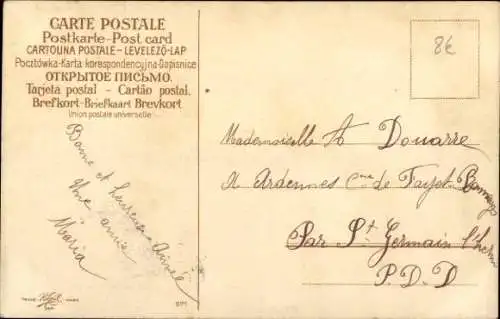 CARTE POSTALE
Postkarte-Post card
CARTOLINA POSTALE-LEVELEZÖ-LAP
Pocztówka-Karta korespondencyjna-Dopisnice
ОТКРЫТОЕ ПИСЬМО.
Tarjeta postal - Cartão postal.
Brefkort-Briefkaart Brevkort
Union postale universelle
8€
Bonne et heureuse Année
Une amie
Maria
Mademoiselle A Douarre
A Ardennes Cne de Fayet
Par St Germain l'herm
P.D.D